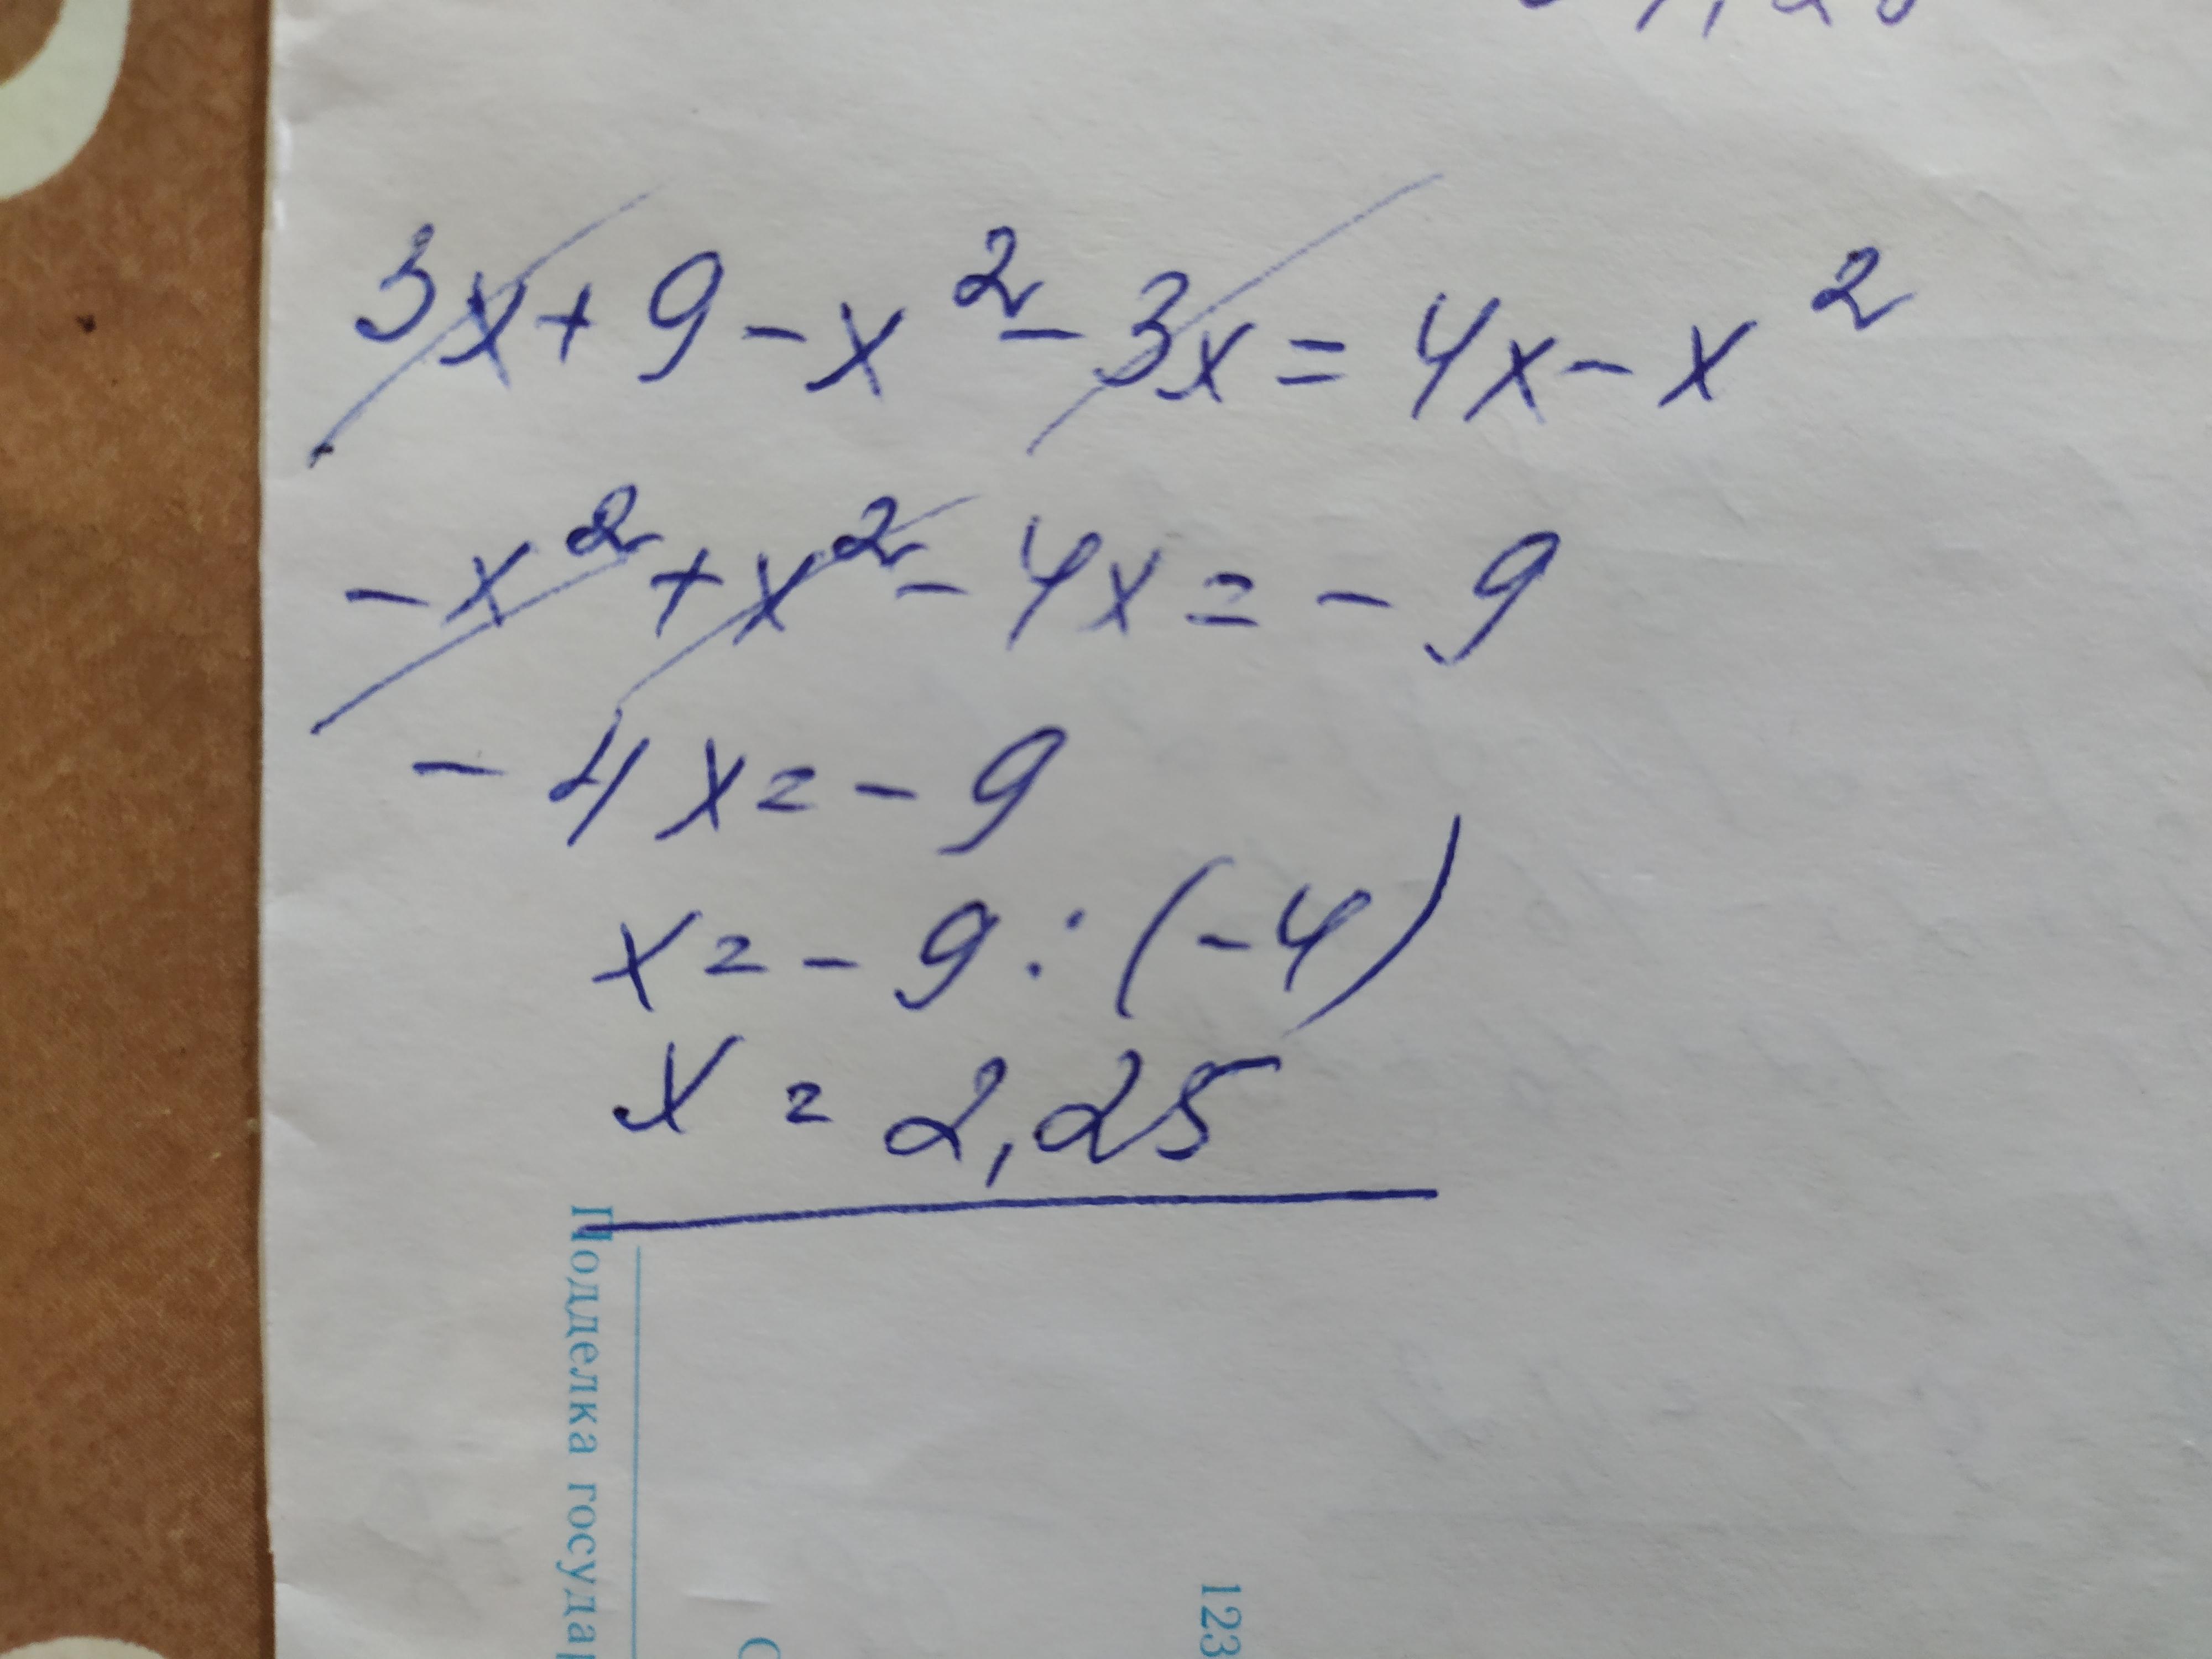 3x + 9 - x² - 3x = 4x - x²
-x² + x² - 4x = -9
-4x = -9
x = -9 : (-4)
x = 2,25
Подделка государ
123